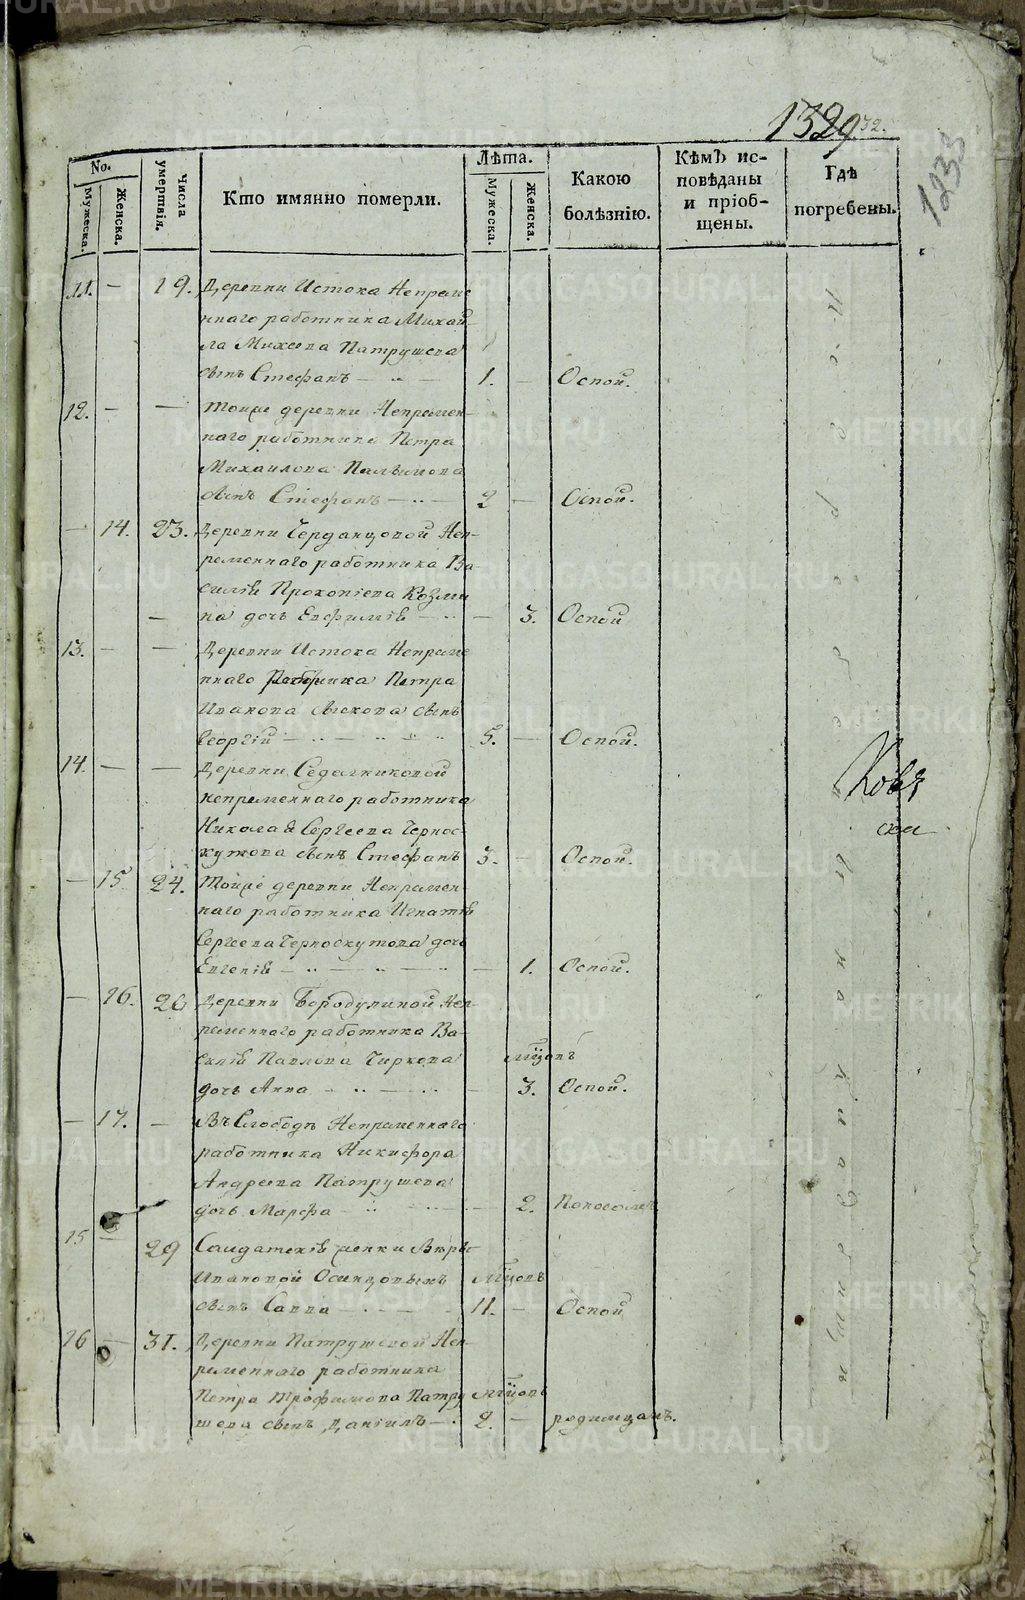 1329
32.
1233
No.
Мужеска.
Женска.
Числа умертвія.
Кто имянно померли.
Лѣта.
Мужеска.
Женска.
Какою болѣзнію.
Кѣмъ исповѣданы и пріобщены.
Гдѣ погребены.
11. — 19. Деревни Истока Непреме
ннаго работника Михай
ла Михеева Патрушева
сынъ Стефанъ — 1. — Оспой.
12. — — Тойже деревни Непремен
наго работника Петра
Михаилова
сынъ Стефанъ — 2 — Оспой.
— 14. 23. Деревни Черданцовой Неп
ременнаго работника Ва
силія Прокопіева Козми
на дочь Евфимія — — 3. Оспой
13. — — Деревни Истока Непреме
ннаго Петра
Иванова сынъ
Георгій — 5. — Оспой.
14. — — Деревни Седелниковой
непременнаго работника
Николая Сергеева Чернос
кутова сынъ Стефанъ 3. — Оспой.
— 15. 24. Тойже деревни Непремен
наго работника Игнатія
Сергеева Черноскутова дочь
Евгенія — — 1. Оспой.
— 16. 26 Деревни Бородулиной Неп
ременнаго работника Ва
силія Павлова Чиркова мѣцовъ
дочь Анна — — 3. Оспой.
— 17. — Въ Слободѣ Непременнаго
работника Никифора
Андреева Патрушева
дочь Марфа — — 2. Поносомъ
15 — 29 Салдатскія женки Вѣры
Ивановой Осинцовыхъ мѣцовъ
сынъ Савва — 11. — Оспой
16 — 31. Деревни Патрушевой Неп
ременнаго работника
Петра Трофимова Патру мѣцовъ
шева сынъ Даніилъ — 2. — родимцамъ.